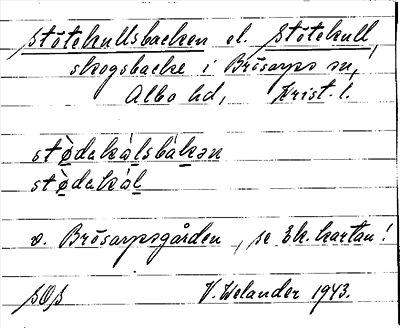 Stötekullsbacken el. Stötekull,
skogsbacke i Brösarps sn,
Albo hd, Krist. l.
stø̀dakálsbàkən
stø̀dakál
v. Brösarpsgården, se Ek. kartan!
V. Welander 1943.